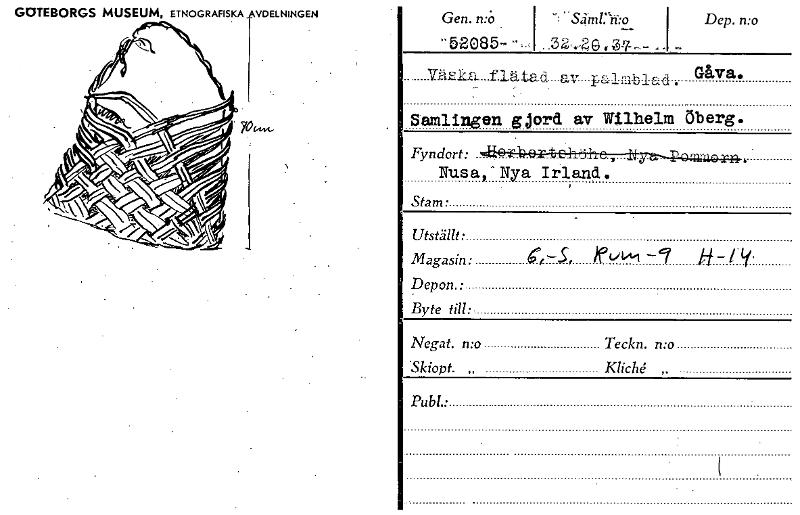 GÖTEBORGS MUSEUM, ETNOGRAFISKA AVDELNINGEN
70 cm
Gen. n:o Saml. n:o Dep. n:o
52085- 32.20.37
Väska flätad av palmblad. Gåva.
Samlingen gjord av Wilhelm Öberg.
Fyndort: Herbertshöhe, Nya Pommern.
Nusa, Nya Irland.
Stam:
Utställt:
Magasin: 6.-S. Rum-9 H-14
Depon.:
Byte till:
Negat. n:o Teckn. n:o
Skiopt. „ Kliché „
Publ.: